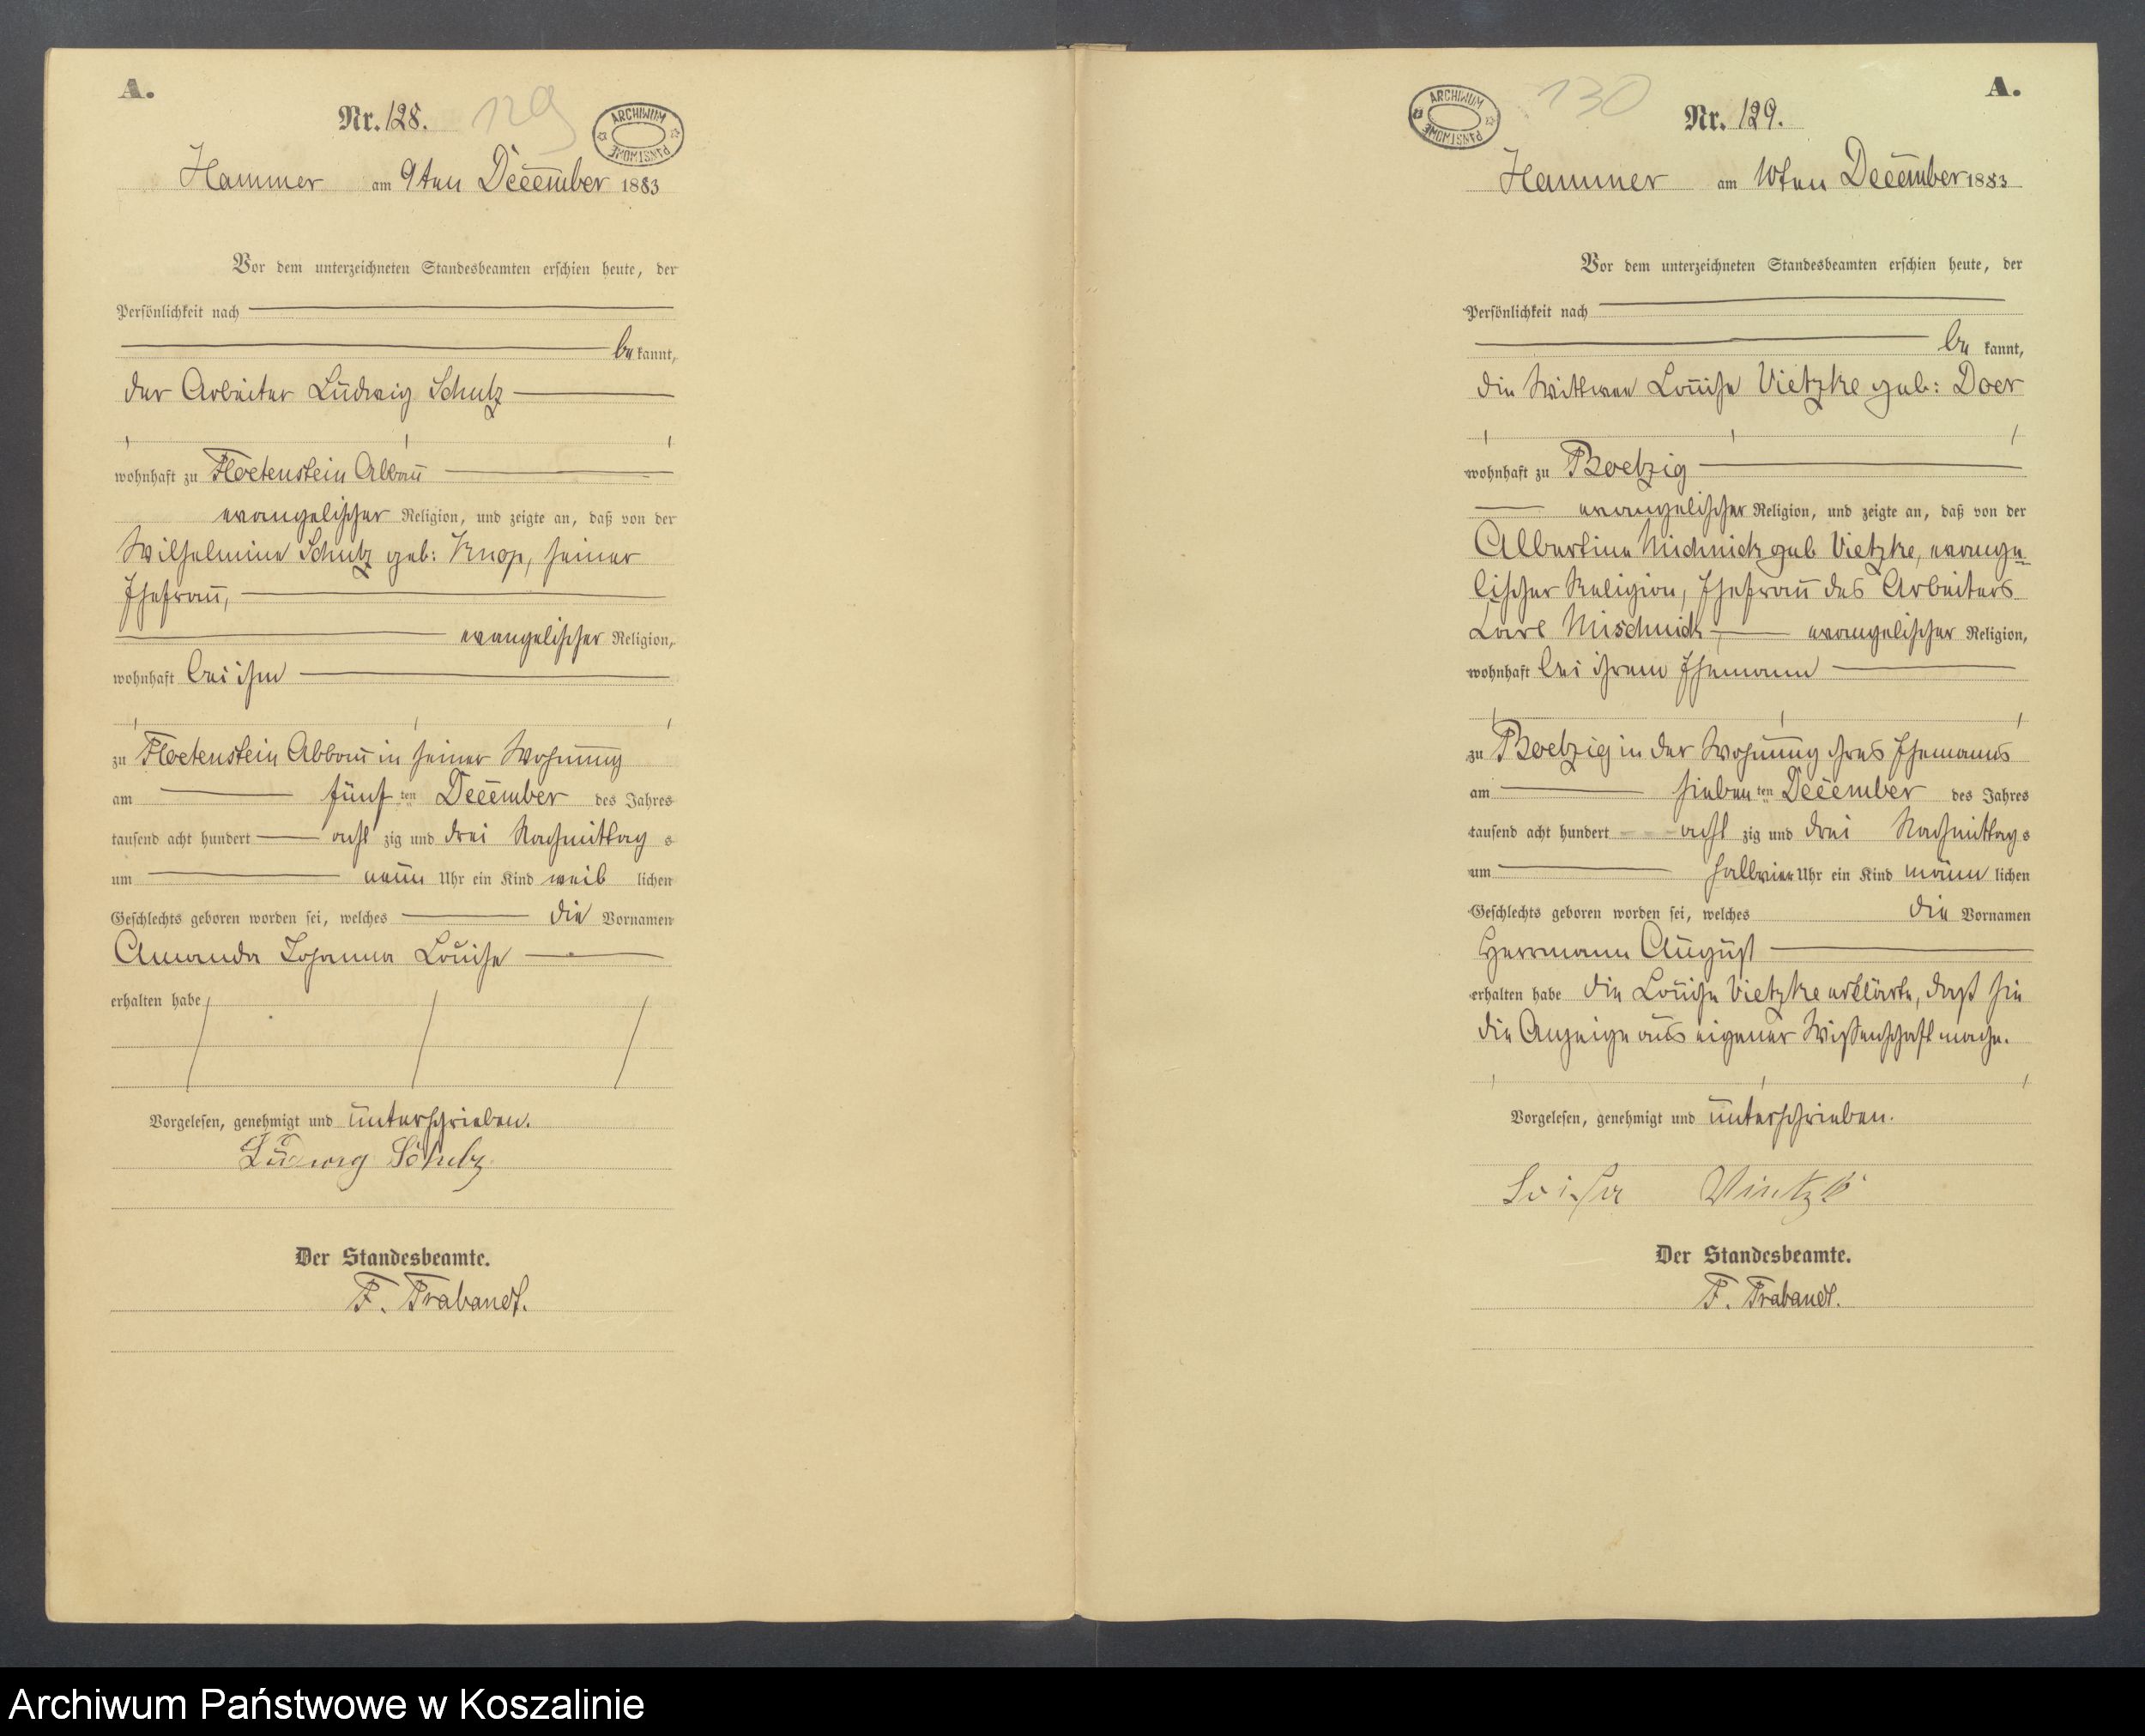 A.
Nr. 128.
129
ARCHIWUM PAŃSTWOWE
Hammer am 9ten December 1883
Vor dem unterzeichneten Standesbeamten erschien heute, der
Persönlichkeit nach
be kannt,
der Arbeiter Ludwig Schulz
wohnhaft zu Floetenstein Abbau
evangelischer Religion, und zeigte an, daß von der
Wilhelmine Schulz geb: Knop, seiner
Ehefrau,
evangelischer Religion,
wohnhaft bei ihm
zu Floetenstein Abbau in seiner Wohnung
am fünf ten December des Jahres
tausend acht hundert acht zig und drei Nachmittag s
um neun Uhr ein Kind weib lichen
Geschlechts geboren worden sei, welches die Vornamen
Amanda Johanna Louise
erhalten habe
Vorgelesen, genehmigt und unterschrieben.
Ludwig Schulz
Der Standesbeamte.
F. Trabandt.
A.
130
Nr. 129.
ARCHIWUM PAŃSTWOWE
Hammer am 10ten December 1883
Vor dem unterzeichneten Standesbeamten erschien heute, der
Persönlichkeit nach
be kannt,
die Wittwee Louise Vietzke geb: Doer
wohnhaft zu Boetzig
evangelischer Religion, und zeigte an, daß von der
Albertine Mischnick geb Vietzke, evange-
lischer Religion, Ehefrau des Arbeiters
Carl Mischnick evangelischer Religion,
wohnhaft bei ihrem Ehemann
zu Boetzig in der Wohnung ihres Ehemanns
am sieben ten December des Jahres
tausend acht hundert acht zig und drei Nachmittag s
um halb vier Uhr ein Kind männ lichen
Geschlechts geboren worden sei, welches die Vornamen
Herrmann August
erhalten habe die Louise Vietzke erklärte, daß sie
die Anzeige aus eigener Wissenschaft mache.
Vorgelesen, genehmigt und unterschrieben.
Loise Vietzk
Der Standesbeamte.
F. Trabandt.
Archiwum Państwowe w Koszalinie